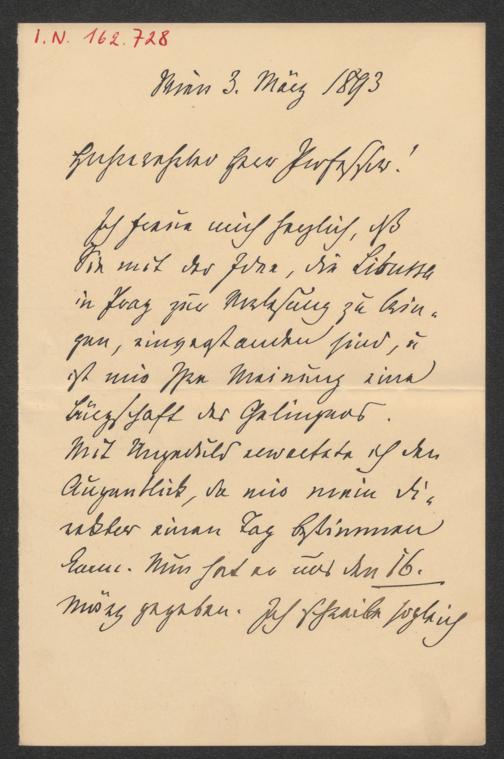 I.N. 162.728
Wien 3. März 1893
Hochverehrter Herr Professor!
Ich freue mich herzlich, daß
Sie mit der Idee, die Libussa
in Prag zur Vorlesung zu brin-
gen, einverstanden sind, u
ist mir Ihre Meinung eine
Bürgschaft des Gelingens.
Mit Ungeduld erwartete ich den
Augenblick, da mir mein Di-
rektor einen Tag bestimmen
kann. Nun hat er mir den 16.
März gegeben. Ich schreibe sogleich